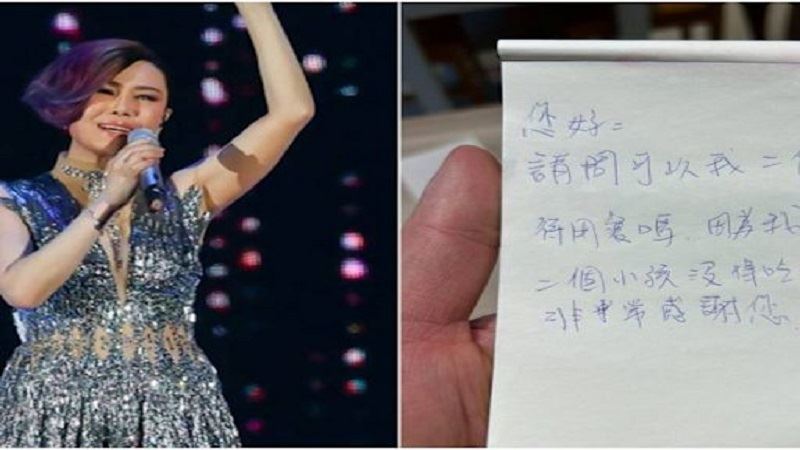 您好=
請問可以我二
用餐嗎. 因為我
二個小孩沒得吃
非常感謝您